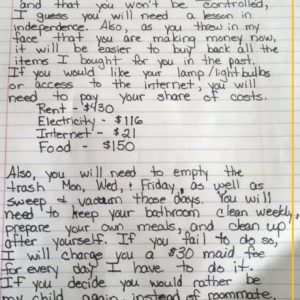 and that you won't be controlled,
I guess you will need a lesson in
independence. Also, as you threw in my
face that you are making money now,
it will be easier to buy back all the
items I bought for you in the past.
If you would like your lamp/lightbulbs
or access to the internet, you will
need to pay your share of costs.
Rent - $430
Electricity - $116
Internet - $21
Food - $150
Also, you will need to empty the
trash Mon, Wed, & Friday, as well as
sweep & vacuum those days. You will
need to keep your bathroom clean weekly,
prepare your own meals, and clean up
after yourself. If you fail to do so,
I will charge you a $30 maid fee
for every day I have to do it.
If you decide you would rather be
my child again instead of roommate,